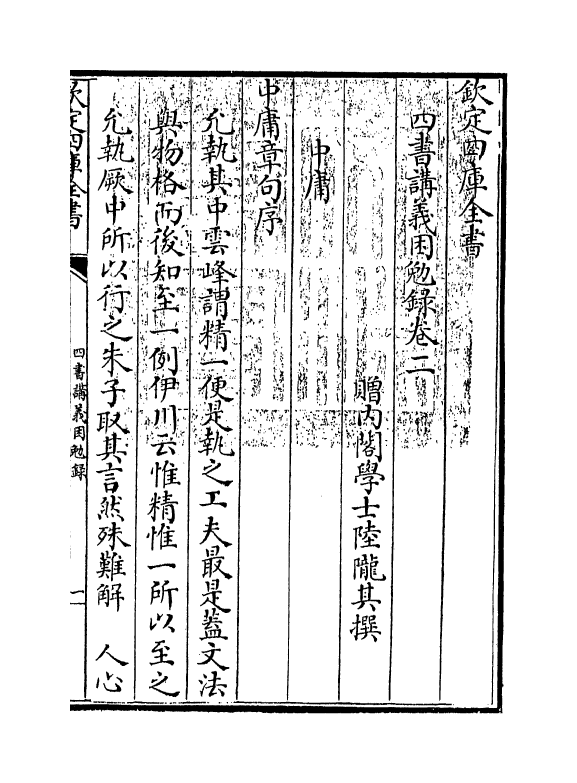 欽定四庫全書
四書講義困勉録卷二
贈內閣學士陸隴其撰
中庸
中庸章句序
允執其中雲峰謂精一便是執之工夫最是蓋文法
與物格而後知至一例伊川云惟精惟一所以至之
允執厥中所以行之朱子取其言然殊難解　人心
欽定四庫全書
四書講義困勉録
一